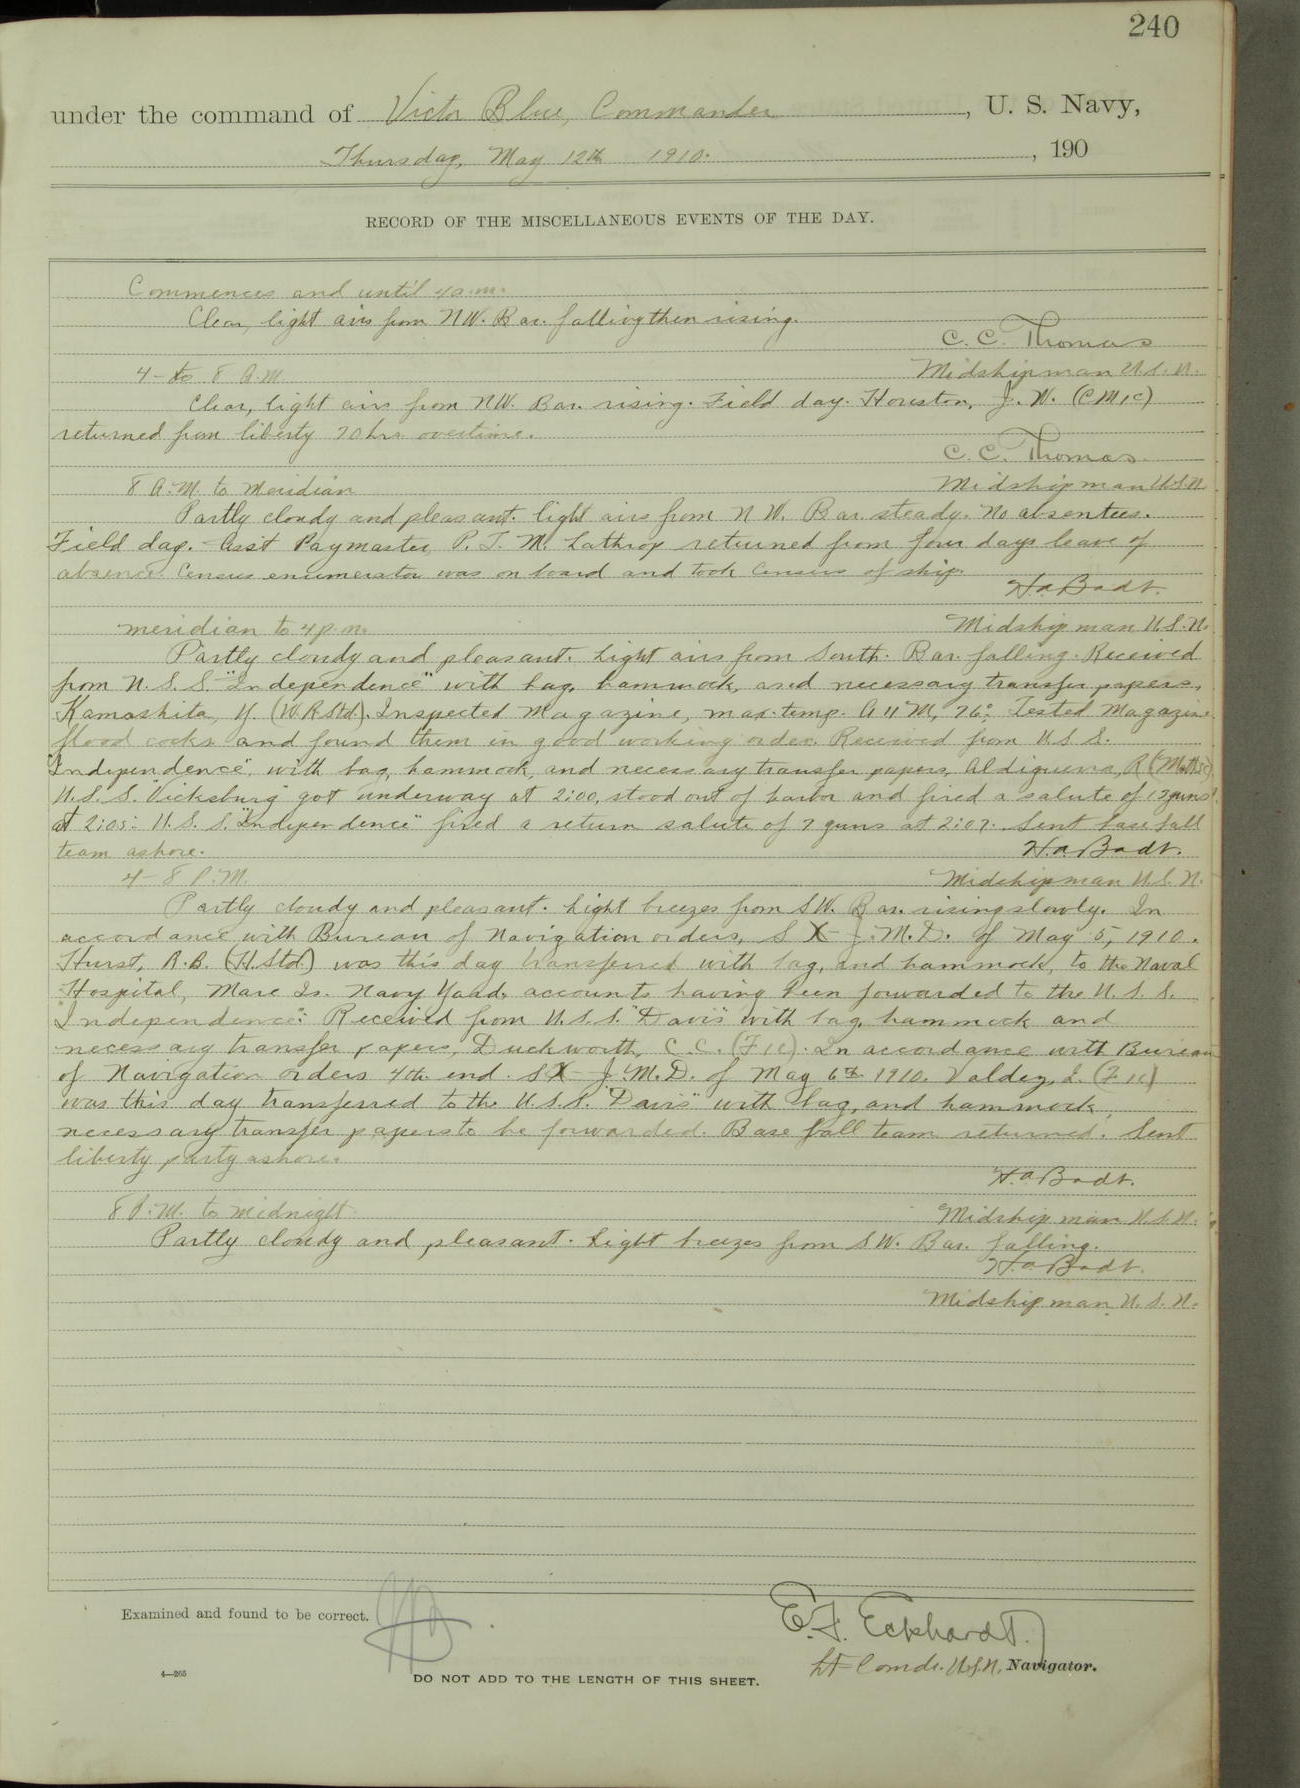 240
under the command of Victor Blue, Commander, U. S. Navy,
Thursday, May 12th 1910. , 190
RECORD OF THE MISCELLANEOUS EVENTS OF THE DAY.
Commences and until 4 a.m.
Clear, light airs from NW. Bar. falling then rising.
C. C. Thomas
Midshipman U.S.N.
4- to 8 A.M.
Clear, light airs from NW. Bar. rising. Field day. Houston, J. W. (CM1c)
returned from liberty 70 hrs overtime.
C. C. Thomas.
Midshipman U.S.N.
8 A.M. to meridian
Partly cloudy and pleasant. light airs from N W. Bar. steady. No absentees.
Field day. Ass't Paymaster P. T. M. Lathrop returned from four days leave of
absence. Census enumerator was on board and took census of ship.
H.a. Badt.
Midshipman U.S.N.
meridian to 4 p.m.
Partly cloudy and pleasant. Light airs from South. Bar. falling. Received
from U.S.S. "Independence" with bag, hammock, and necessary transfer papers,
Kamashita, Y. (W.R.Std). Inspected Magazine, max. temp. A 11 M, 76°. Tested Magazine
flood cocks and found them in good working order. Received from U.S.S.
"Independence", with bag, hammock, and necessary transfer papers, Aldiguerra, R
U.S.S. "Vicksburg" got underway at 2:00, stood out of harbor and fired a salute of guns
at 2:05. U.S.S. "Independence" fired a return salute of 7 guns at 2:07. Sent base ball
team ashore.
H.a. Badt.
Midshipman U.S.N.
4- 8 P.M.
Partly cloudy and pleasant. Light breezes from SW. Bar. rising slowly. In
accordance with Bureau of Navigation orders, S X - J.M.D. of May 5, 1910.
Hurst, R.B. (H.Std.) was this day transferred with bag, and hammock, to the Naval
Hospital, Mare Is. Navy Yaad, accounts having been forwarded to the U.S.S.
"Independence". Received from U.S.S. "Davis" with bag, hammock and
necessary transfer papers, Duckworth, C.C. (F1c). In accordance with Bureau
of Navigation orders 4th end. SX - J.M.D. of May 6th 1910. Valdez, I. (F1c)
was this day transferred to the U.S.S. "Davis" with bag, and hammock,
necessary transfer papers to be forwarded. Base ball team returned. Sent
liberty party ashore.
H.a. Badt.
Midshipman U.S.N.
8 P.M. to midnight
Partly cloudy and pleasant. Light breezes from SW. Bar. falling.
H.a. Badt.
Midshipman U.S.N.
Examined and found to be correct.
E. F. Eckhardt.
Lt-Comdr. U.S.N, Navigator.
4—265
DO NOT ADD TO THE LENGTH OF THIS SHEET.